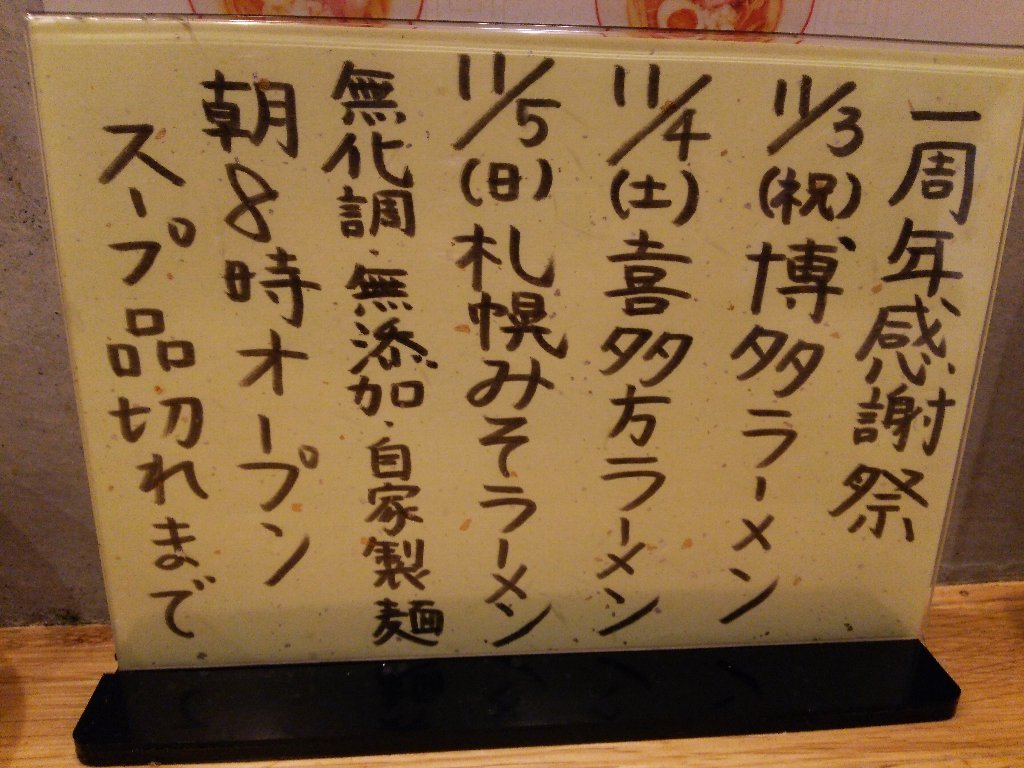 一周年感謝祭
11/3(祝)博多ラーメン
11/4(土)喜多方ラーメン
11/5(日)札幌みそラーメン
無化調・無添加・自家製麺
朝8時オープン
スープ品切れまで